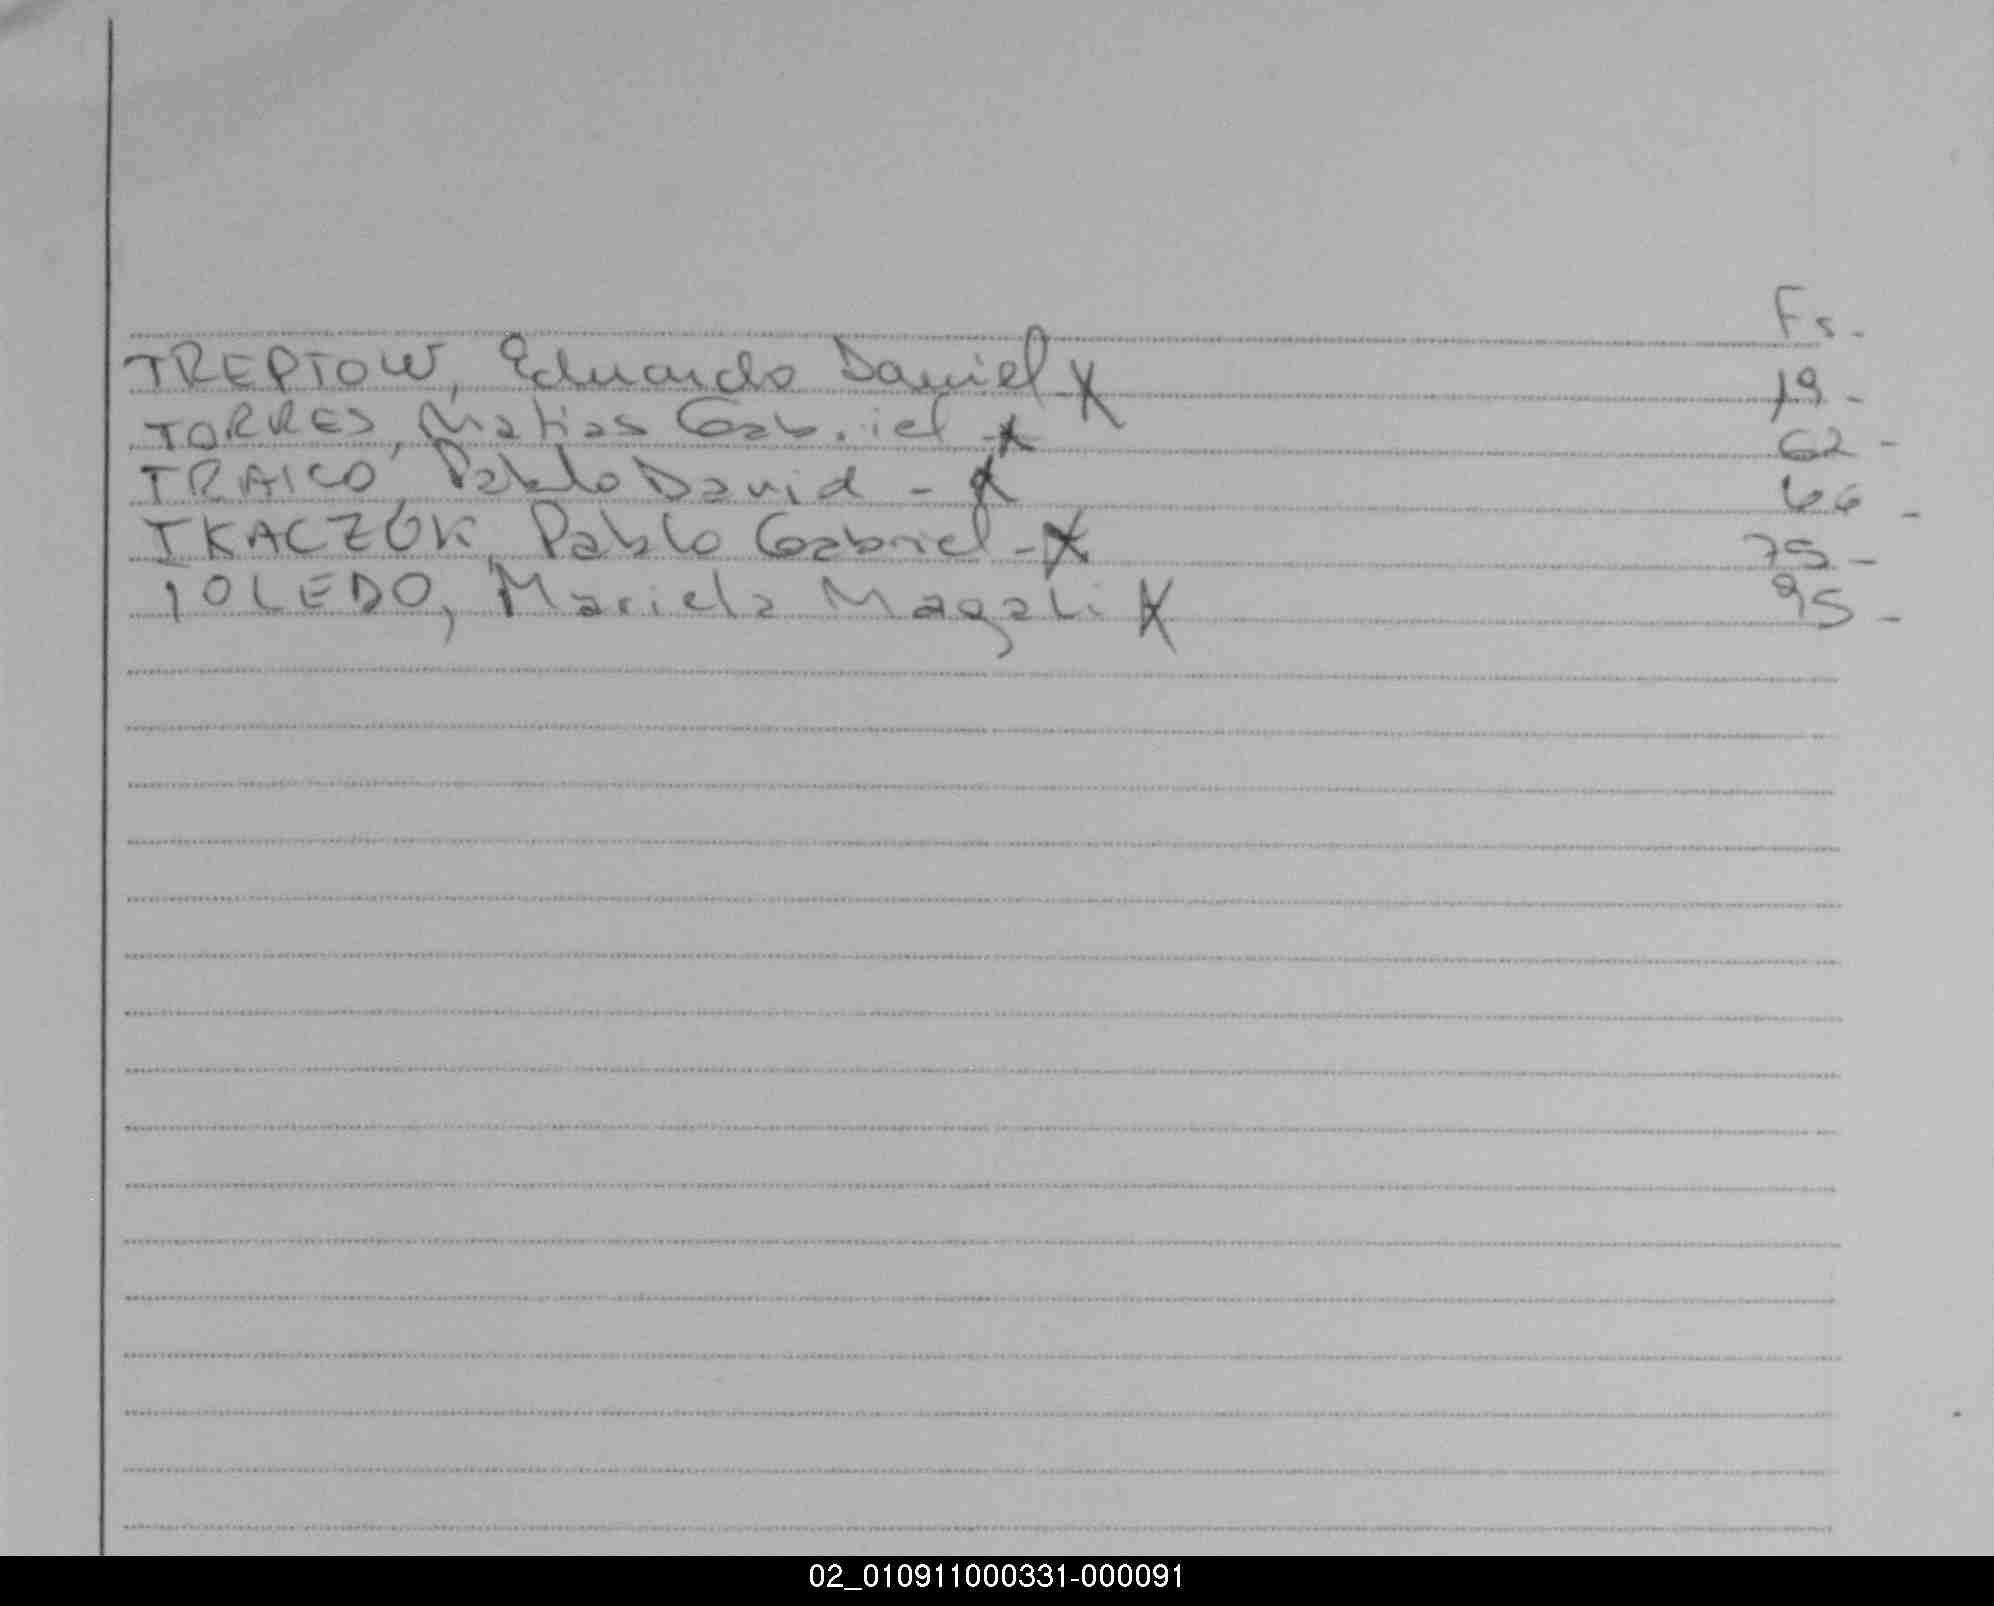 Fs.
TREPTOW, Eduardo Daniel X 19-
TORRES, Matias Gabriel -X 62-
TRAICO, Pablo David - X 66-
TKACZUK, Pablo Gabriel -X 75-
TOLEDO, Mariela Magali X 95-
02_010911000331-000091